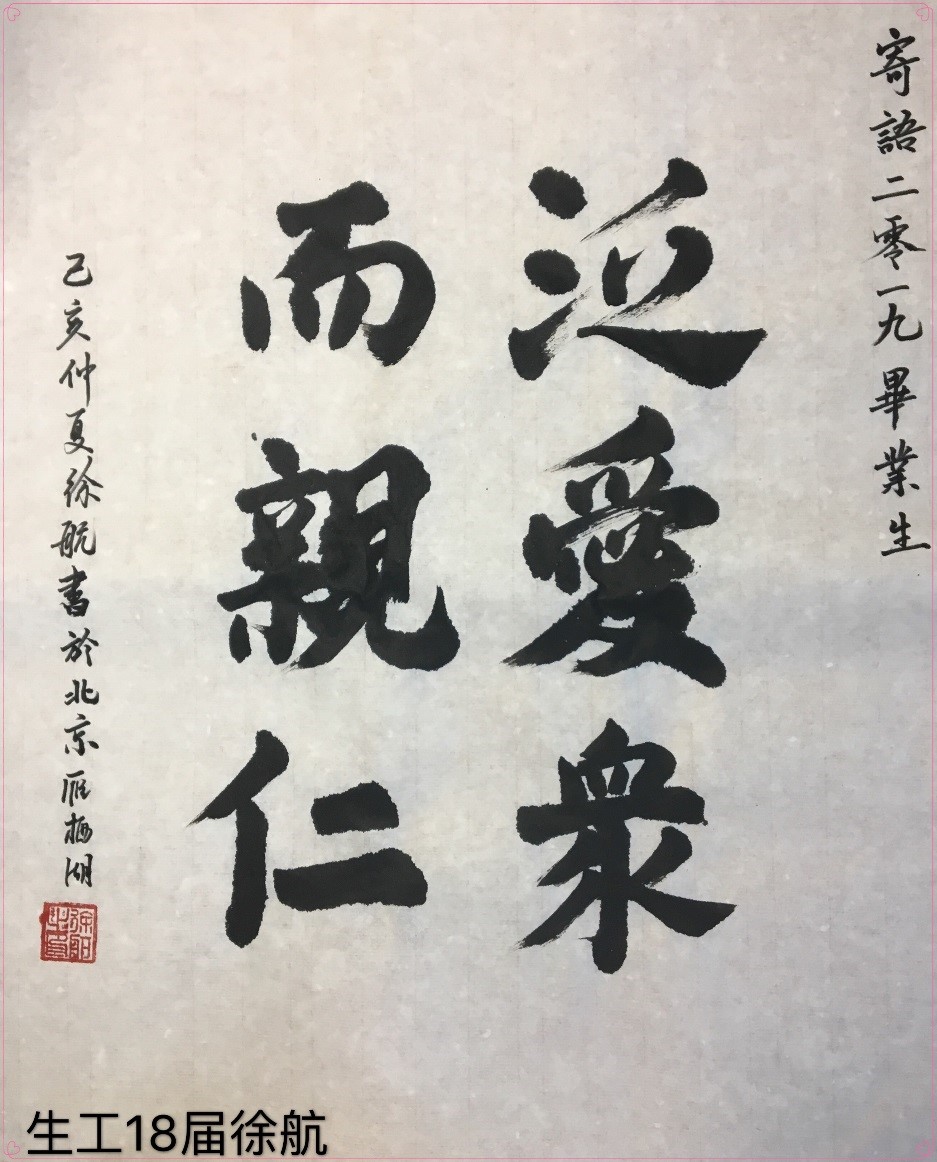 寄語二零一九畢業生
泛愛衆
而親仁
己亥仲夏徐航書於北京雁栖湖
徐航之印
生工18届徐航